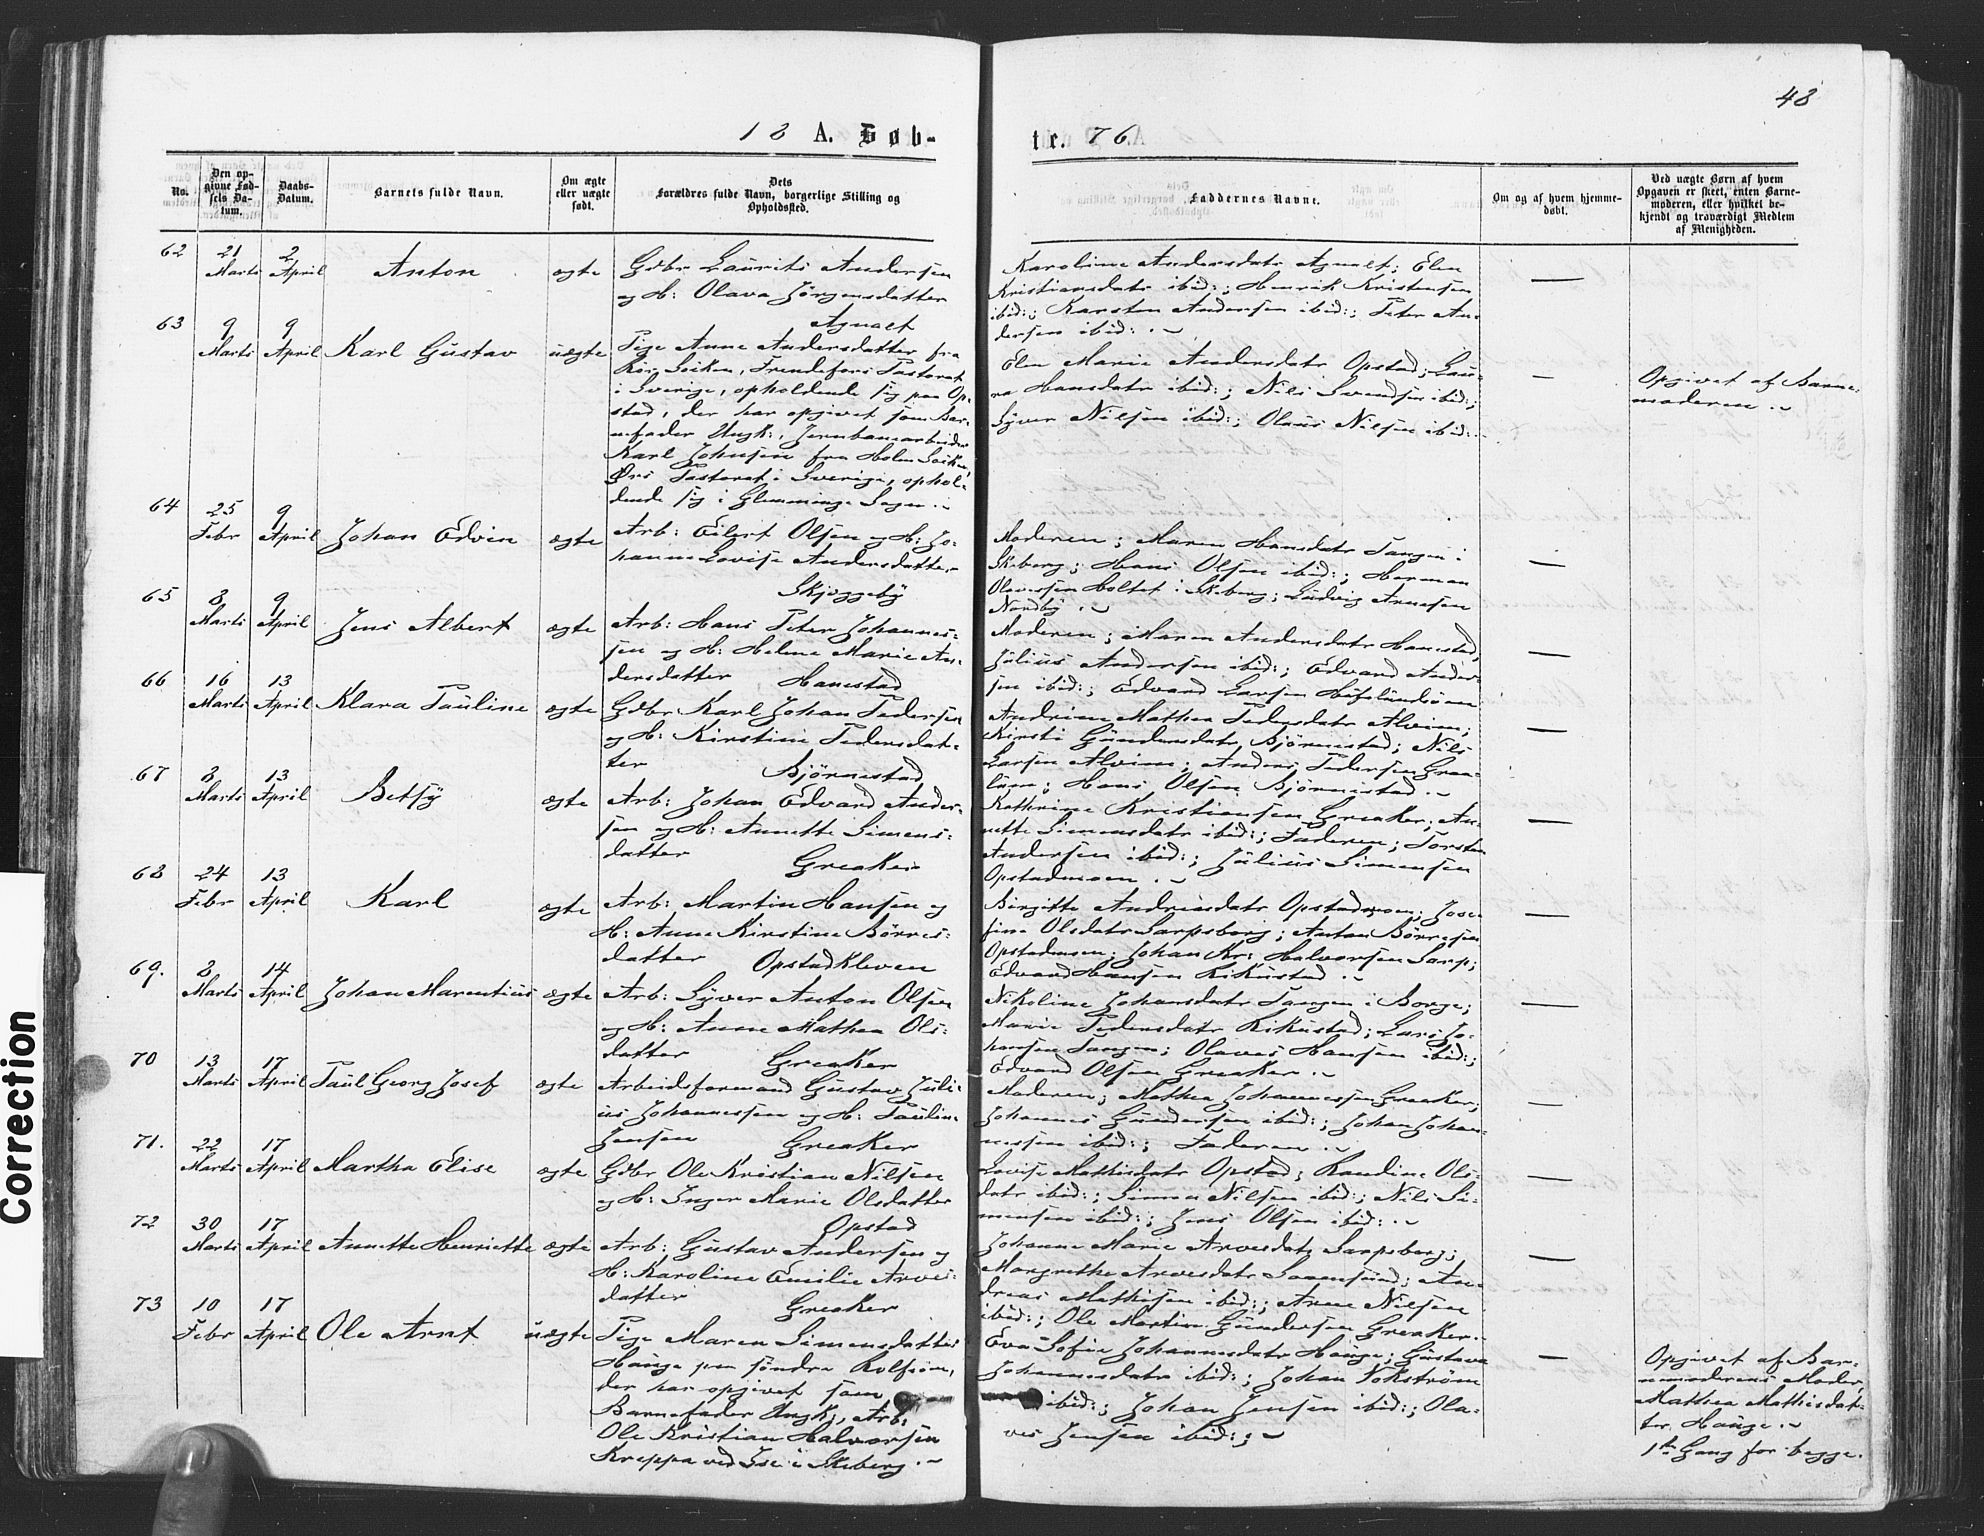 48
18 A. Døb-
te. 76.
No.
Den op-
givne Fød-
sels Da-
tum.
Daabs-
Datum.
Barnets fulde Navn.
Om ægte
eller uægte
født.
Dets
Forældres fulde Navn, borgerlige Stilling og
Opholdssted.
Faddernes Navne.
Om og af hvem hjemme-
døbt.
Ved uægte Børn af hvem
Opgaven er skeet, enten Barne-
moderen, eller hvilket be-
kjendt og troværdigt Medlem
af Menigheden.
62 21 Marts 2 April Anton ægte
Gdbr Laurits Andersen
og H: Olava Jörgensdatter
Agnalt
Karoline Andersdatr Agnalt; Elen
Kristiansdatr ibid:; Henrik Kristensen
ibid:; Karsten Andersen ibid:; Peter An-
dersen ibid:.
63 9 Marts 9 April Karl Gustav uægte
Pige Anne Andersdatter fra
Kör Soken, Frendefors Pastorat
i Sverige, opholdende sig paa Op-
stad, der har opgivet som Bar-
nefader Ungk:, Jernbanearbeider
Karl Johnsen fra Holm Soken,
Örs Pastorat i Sverige, ophol-
dende sig i Glemminge Sogn.
Elen Marie Andersdatr Opstad; Lau-
ra Hansdatr ibid:; Nils Svendsen ibid:;
Syver Nilsen ibid:; Olaus Nilsen ibid:.
Opgivet af Barne-
moderen.
64 25 Febr 9 April Johan Edvin ægte
Arb: Eilert Olsen og H: Jo-
hanne Lovise Andersdatter
Skjöggeby
Moderen; Maren Hansdatr Tangen i
Skeberg; Hans Olsen ibid:; Herman
Olavesen Holtet i Skeberg; Ludvig Arnesen
Nordby.
65 8 Marts 9 April Jens Albert ægte
Arb: Hans Peter Johannes-
sen og H: Helene Marie An-
dersdatter Hanestad
Moderen; Maren Andersdatr Hanestad;
Julius Andersen ibid:; Edvard Ander-
sen ibid:; Edvard Larsen Hafslundsöen
66 16 Marts 13 April Klara Pauline ægte
Gdbr Karl Johan Pedersen
og H: Kirstine Pedersdat-
ter Björnestad
Andrine Mathea Pedersdatr Alvim;
Kirsti Gundersdatr Björnestad; Nils
Larsen Alvim; Anders Pedersen Graa-
lum; Hans Olsen Björnestad.
67 8 Marts 13 April Betsy ægte
Arb: Johan Edvard Ander-
sen og H: Annette Simens-
datter Greaker
Kathrine Kristiansen Greaker; An-
nette Simensdatr ibid:; Faderen; Torsten
Andersen ibid:; Julius Simensen
Opstadmoen.
68 24 Febr 13 April Karl ægte
Arb: Martin Hansen og
H: Anne Kirstine Börres-
datter Opstadkleven
Birgitte Andreasdatr Opstadmoen; Jose-
fine Olsdatr Sarpsborg; Anton Börresen
Opstadmoen; Johan Kr: Halvorsen Sarp;
Edvard Hansen Kikustad.
69. 8 Marts 14 April Johan Marentius ægte
Arb: Syver Anton Olsen
og H: Anne Mathea Ols-
datter Greaker
Nikoline Johansdatr Tangen i Borge;
Marie Pedersdatr Kikustad; Lars Jo-
hansen Tangen; Olaves Hansen ibid:;
Edvard Olsen Greaker.
70 13 Marts 17 April Paul Georg Josef ægte
Arbeidsformand Gustav Juli-
us Johannessen og H: Pauline
Jensen Greaker
Moderen; Mathea Johannessen Greaker;
Johannes Gundersen ibid:; Johan Johan-
nessen ibid:; Faderen.
71. 22 Marts 17 April Martha Elise ægte
Gdbr Ole Kristian Nilsen
og H: Inger Marie Olsdatter
Opstad
Lovise Mathisdatr Opstad; Randine Ols-
datr ibid:; Simen Nilsen ibid:; Nils Si-
mensen ibid:; Jens Olsen ibid:.
72 30 Marts 17 April Annette Henriette ægte
Arb: Gustav Andersen og
H: Karoline Emilie Arves-
datter Greaker
Johanne Marie Arvesdatr Sarpsborg;
Margrethe Arvesdatr Sannesund; An-
dreas Mathisen ibid:; Arne Nilsen
ibid:; Ole Martin Gundersen Greaker.
73 10 Febr 17 April Ole Arnt uægte
Pige Maren Simensdatter
Hauge paa söndre Rolfsöen,
der har opgivet som
Barnefader Ungk:, Arb:
Ole Kristian Halvorsen
Kreppa ved Ise i Skeberg.
Eva Sofie Johannesdatr Hauge; Gustava
Johannesdatr ibid:; Johan Vokström
ibid:; Johan Jensen ibid:; Ola-
ves Jensen ibid:;
Opgivet af Bar-
nemoderens Moder,
Mathea Mathisdat-
ter, Hauge.
1ste Gang for begge.
Correction